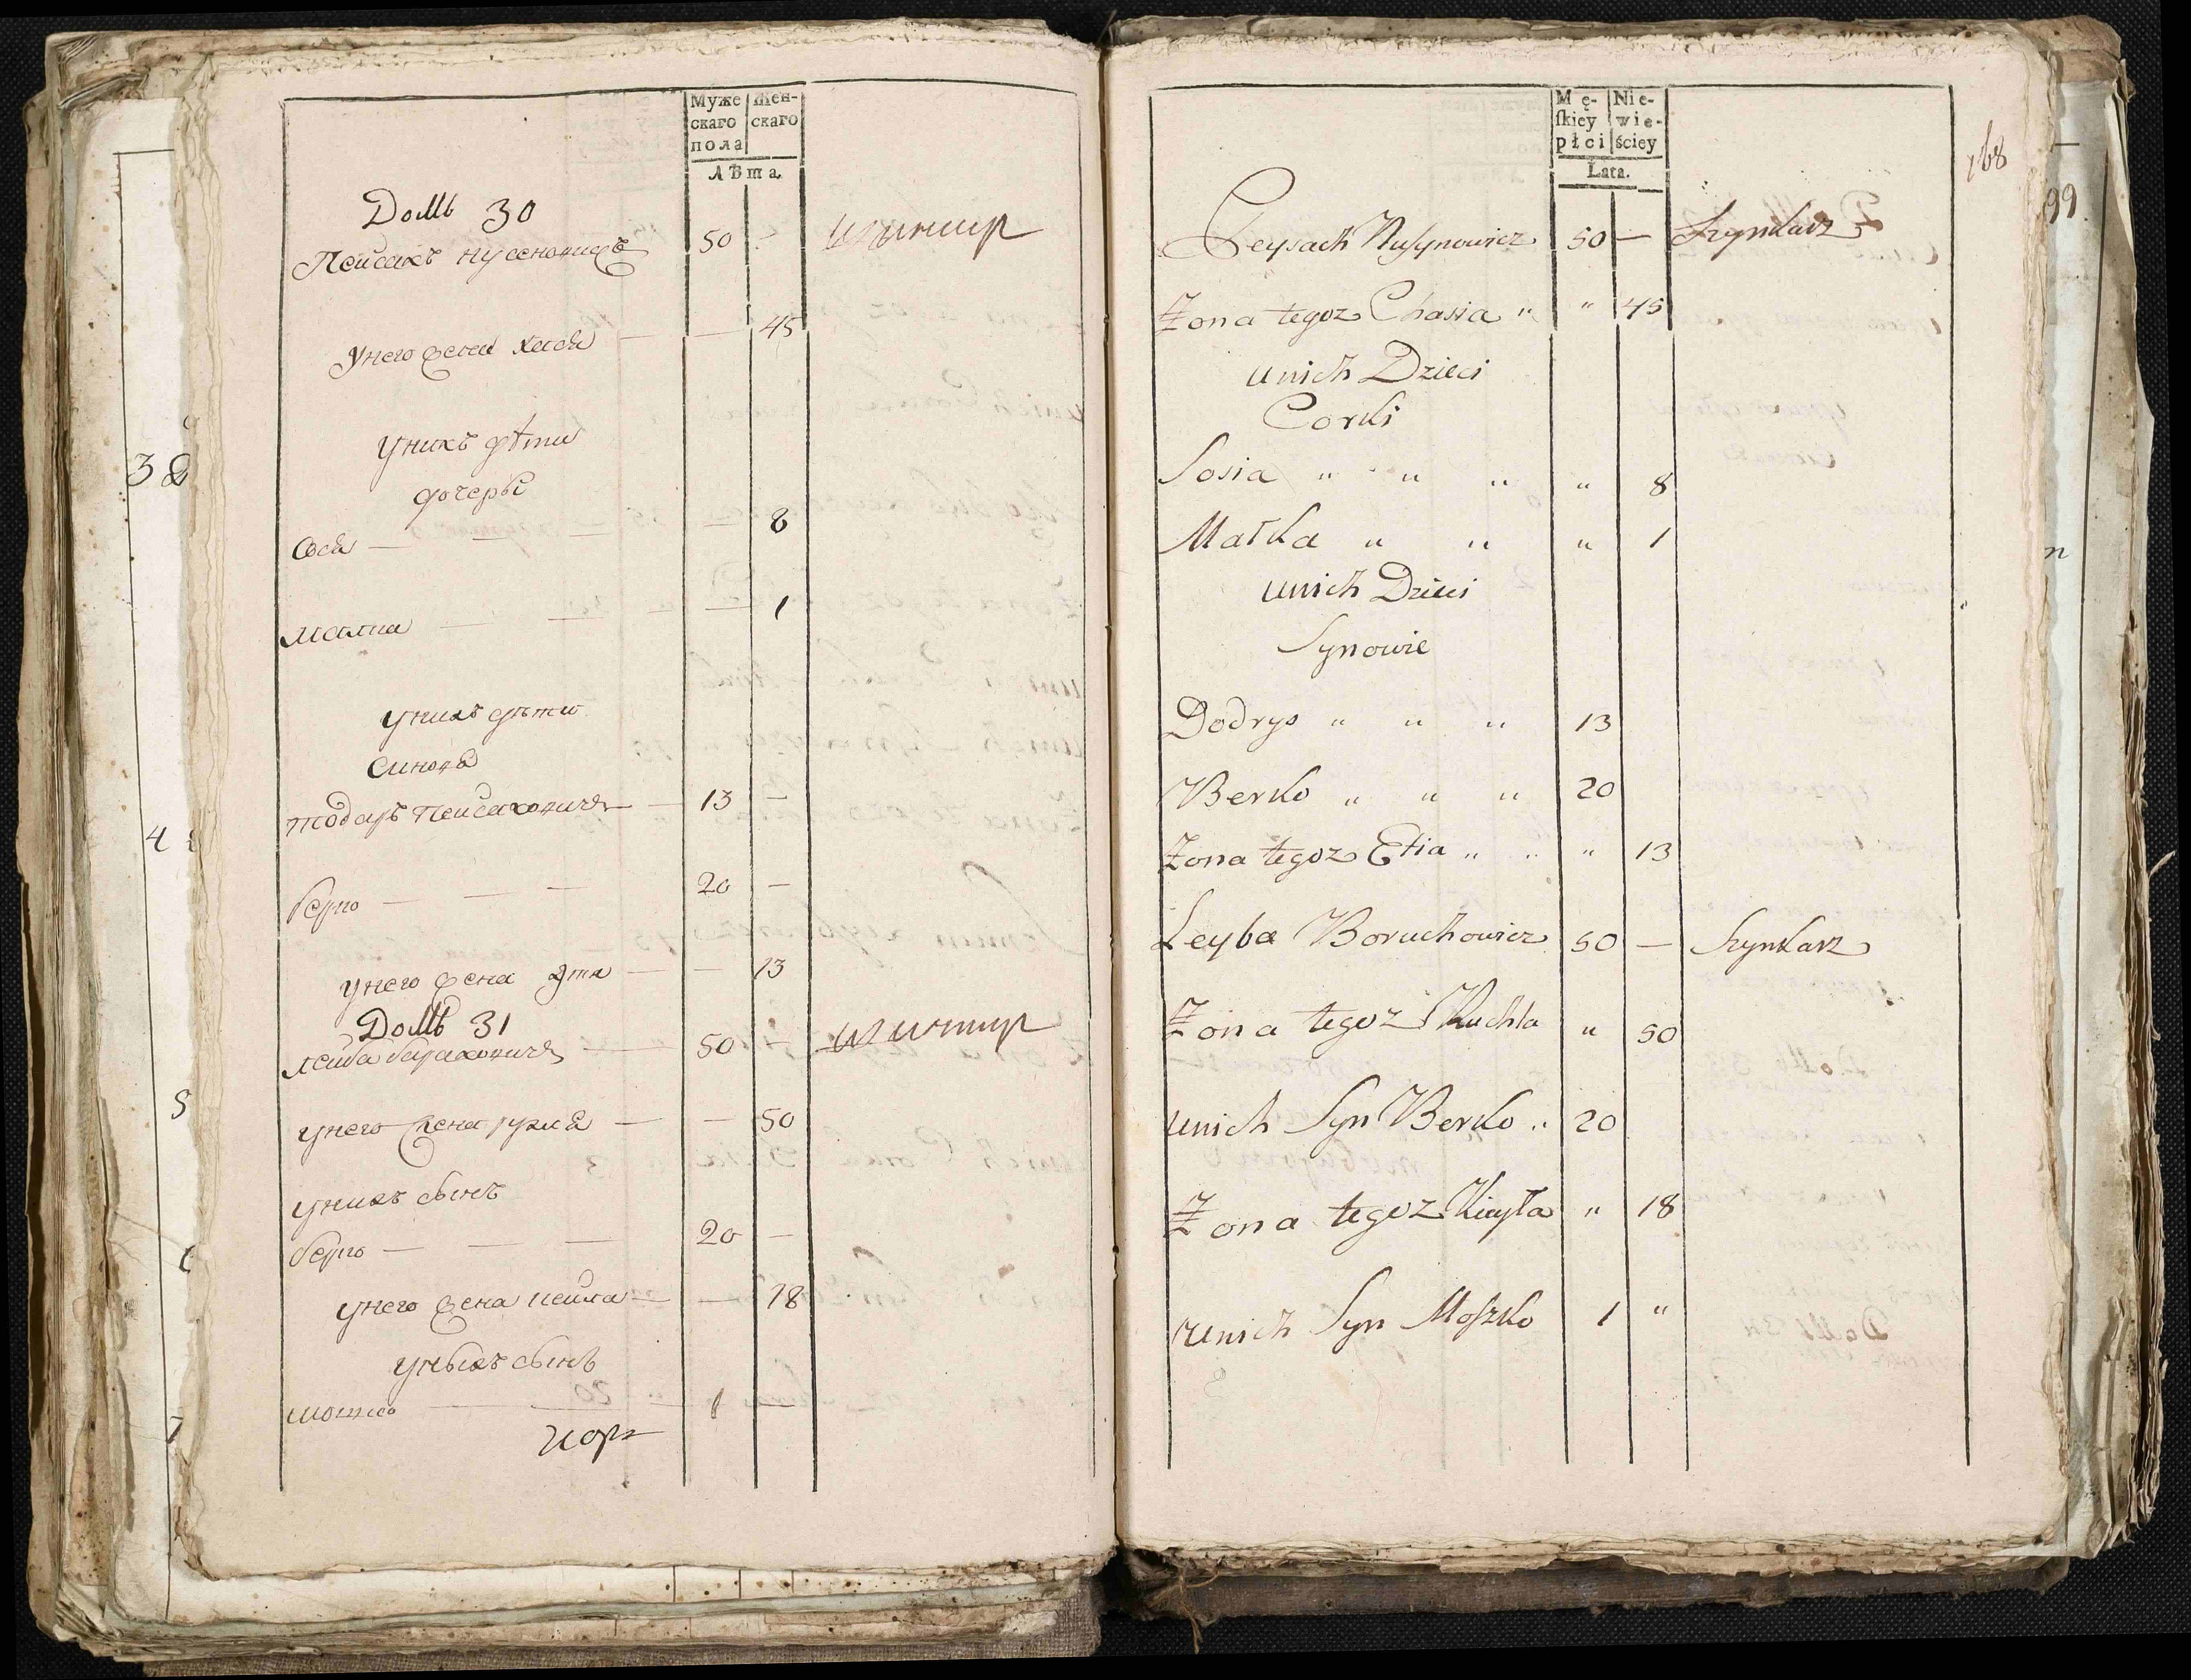 Муже
скаго
пола
Жен-
скаго
лѣта.
Домъ 30
Пейсахъ Нусеновичъ 50 - шинкар
Унего жена хася — — 45
Унихъ дѣти
дочеры
Сося — — — — 8
Малка — — — 1
Унихъ дѣти
Синовя
Тодаръ Пейсаховичъ — 13 —
берко — — — 20 —
унего жена Этя — — 13
Домъ 31
лейба бараховичъ — 50 — шинкар
унего жена рухля — — 50
унихъ сынъ
берко — — — 20 —
унего жена кейла — — 18
уныхъ сынъ
мошко — — — 1 —
Mę-
skiey
płci
Nie-
wie-
ściey
Lata.
168
Peysach Nusynowicz 50 — Szynkarz
Żona tegoz Chasia " " 45
unich Dzieci
Corki
Sosia " " " " 8
Małka " " " 1
unich Dzieci
Synowie
Dodrys " " " 13
Berko " " " 20
Żona tegoz Etia " " " 13
Leyba Boruchowicz 50 — Szynkarz
Żona tegoz Ruchla " 50
unich Syn Berko " 20
Żona tegoz Kieyła " 18
unich Syn Moszko 1 "
38
4
5
7
99
n